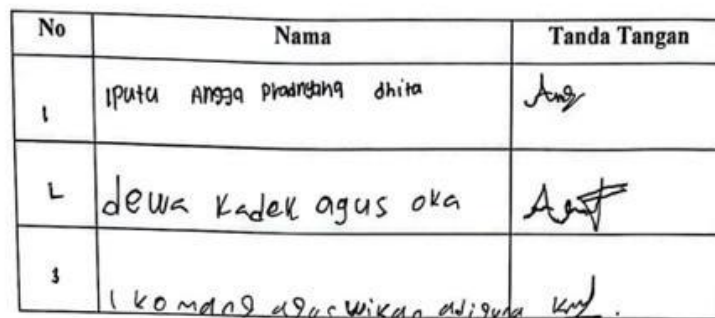 No Nama Tanda Tangan
1 I Putu Angga Pradnyana dhita Ang
2 dewa Kadek agus oka
3 I komang agus wikan adiguna